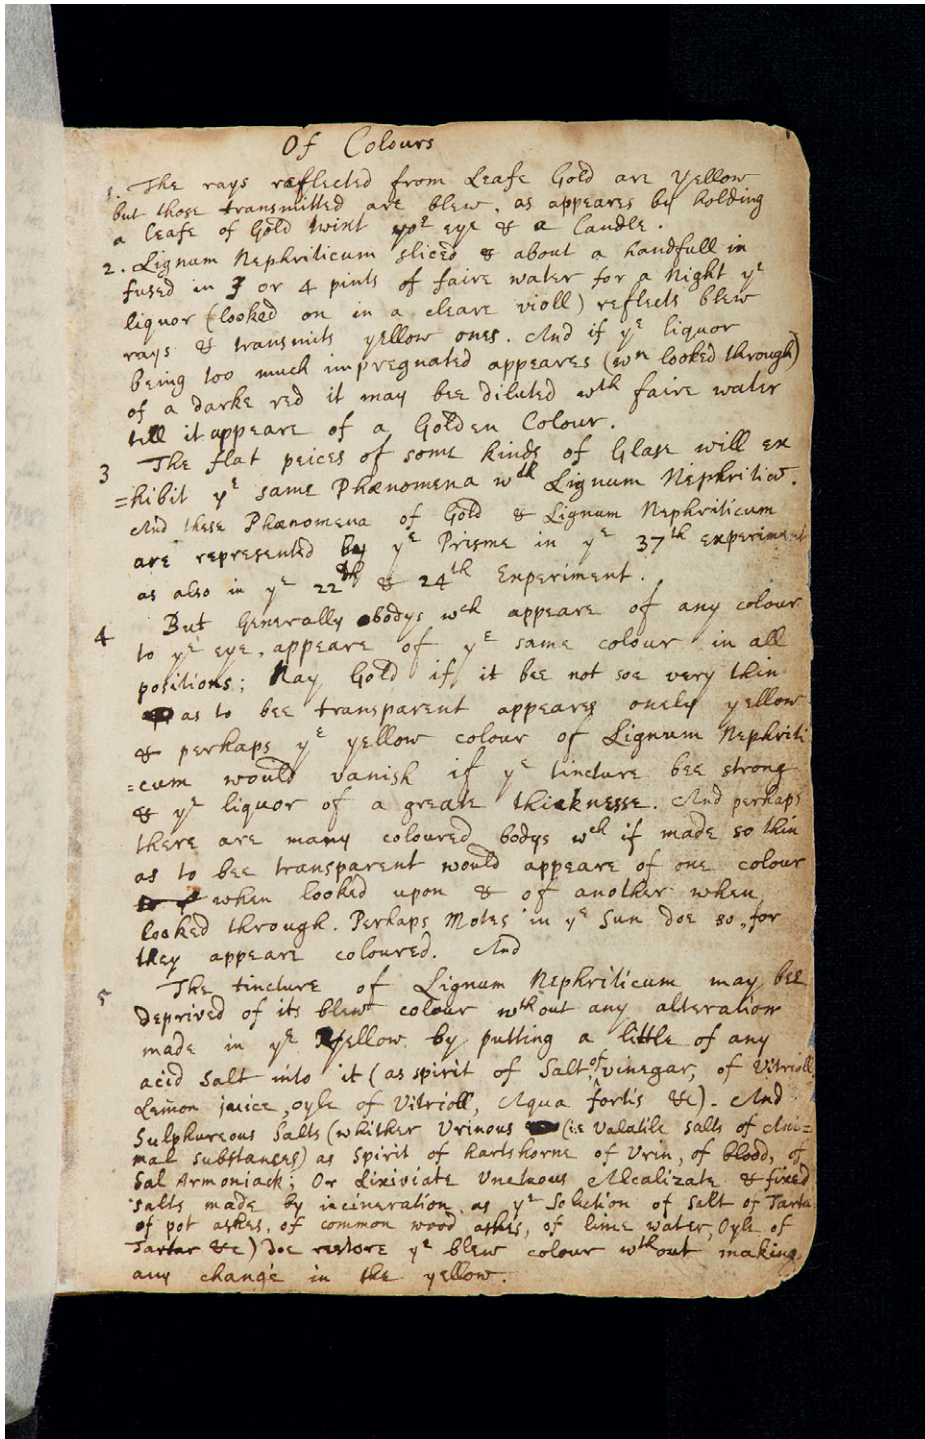 Of Colours
1. The rays reflected from Leafe Gold are yellow
but those transmitted are blew, as appeares by holding
a leafe of Gold twixt yor eye & a Candle.
2. Lignum Nephriticum sliced & about a handfull in
fused in 3 or 4 pints of faire water for a night ye
liquor (looked on in a cleare violl) reflects blew
rays & transmits yellow ones. And if ye liquor
being too much impregnated appeares (wn looked through)
of a darke red it may bee diluted wth faire water
till it appeare of a Golden Colour.
3 The flat peices of some kinds of Glase will ex
=hibit ye same Phænomena wth Lignum Nephritic̄.
And these Phænomena of Gold & Lignum Nephriticum
are represented by ye Prisme in ye 37th experiment
as also in ye 22th & 24th Experiment.
4 But Generally bodys wch appeare of any colour
to ye eye, appeare of ye same colour in all
positions; Nay Gold if it bee not soe very thin
as to bee transparent appeares onely yellow
& perhaps ye yellow colour of Lignum Nephriti
=cum would vanish if ye tincture bee strong
& ye liquor of a greate thicknesse. And perhaps
there are many coloured bodys wch if made so thin
as to bee transparent would appeare of one colour
when looked upon & of another when
looked through. Perhaps Motes in ye Sun doe so, for
they appeare coloured. And
5 The tincture of Lignum Nephriticum may bee
deprived of its blew colour wthout any alteration
made in ye yellow by putting a little of any
acid salt into it (as spirit of Salt, of vinegar, of Vitrioll,
Lemon juice, oyle of Vitrioll, Aqua fortis &c). And
Sulphureous Salts (whither Urinous (i.e Valatile salts of Ani=
mal substances) as Spirit of hartshorne of Urin, of blood, of
Sal Armoniack; Or Lixiviate Unctuous Alcalizate & fixed
salts made by incineration, as ye Solution of salt of Tartar
of pot ashes, of common wood ashes, of lime water, Oyle of
Tartar &c) doe restore ye blew colour wthout making
any change in the yellow.